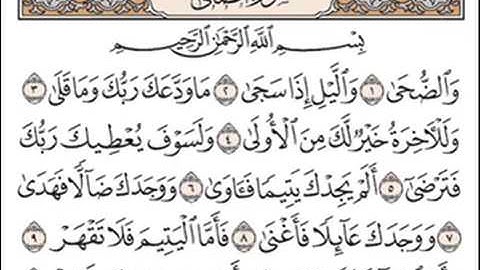 بِسْمِ اللَّهِ الرَّحْمَٰنِ الرَّحِيمِ
وَالضُّحَىٰ ١ وَاللَّيْلِ إِذَا سَجَىٰ ٢ مَا وَدَّعَكَ رَبُّكَ وَمَا قَلَىٰ ٣
وَلَلْآخِرَةُ خَيْرٌ لَّكَ مِنَ الْأُولَىٰ ٤ وَلَسَوْفَ يُعْطِيكَ رَبُّكَ
فَتَرْضَىٰ ٥ أَلَمْ يَجِدْكَ يَتِيمًا فَـَٔاوَىٰ ٦ وَوَجَدَكَ ضَآلًّا فَهَدَىٰ
٧ وَوَجَدَكَ عَآئِلًا فَأَغْنَىٰ ٨ فَأَمَّا الْيَتِيمَ فَلَا تَقْهَرْ ٩